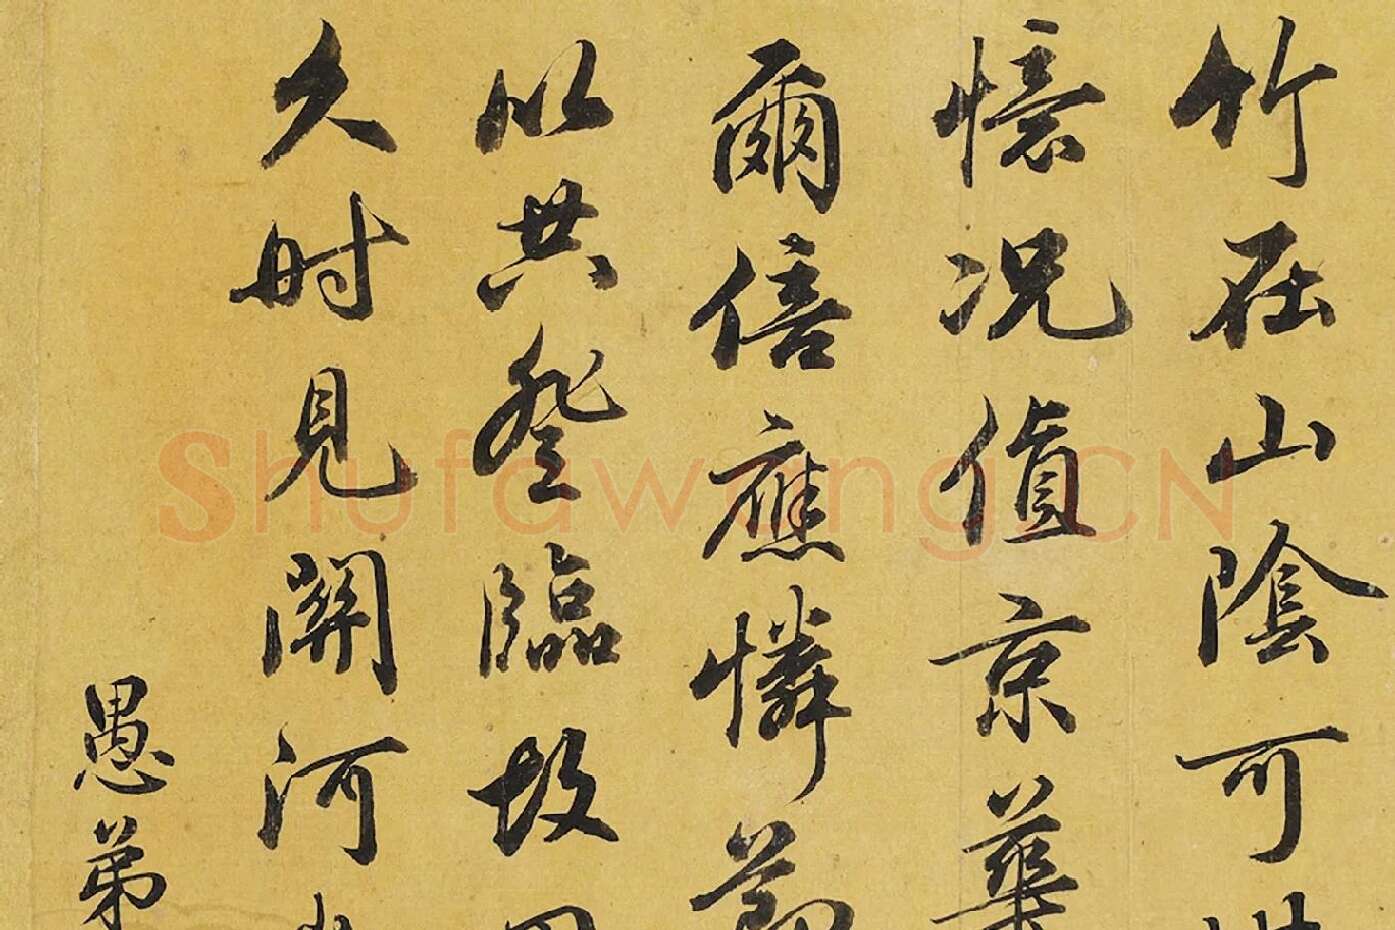 竹在山陰可
憶况值京華
爾倍應憐節
以共登臨故
久时見關河
愚弟
Shufawang.CN